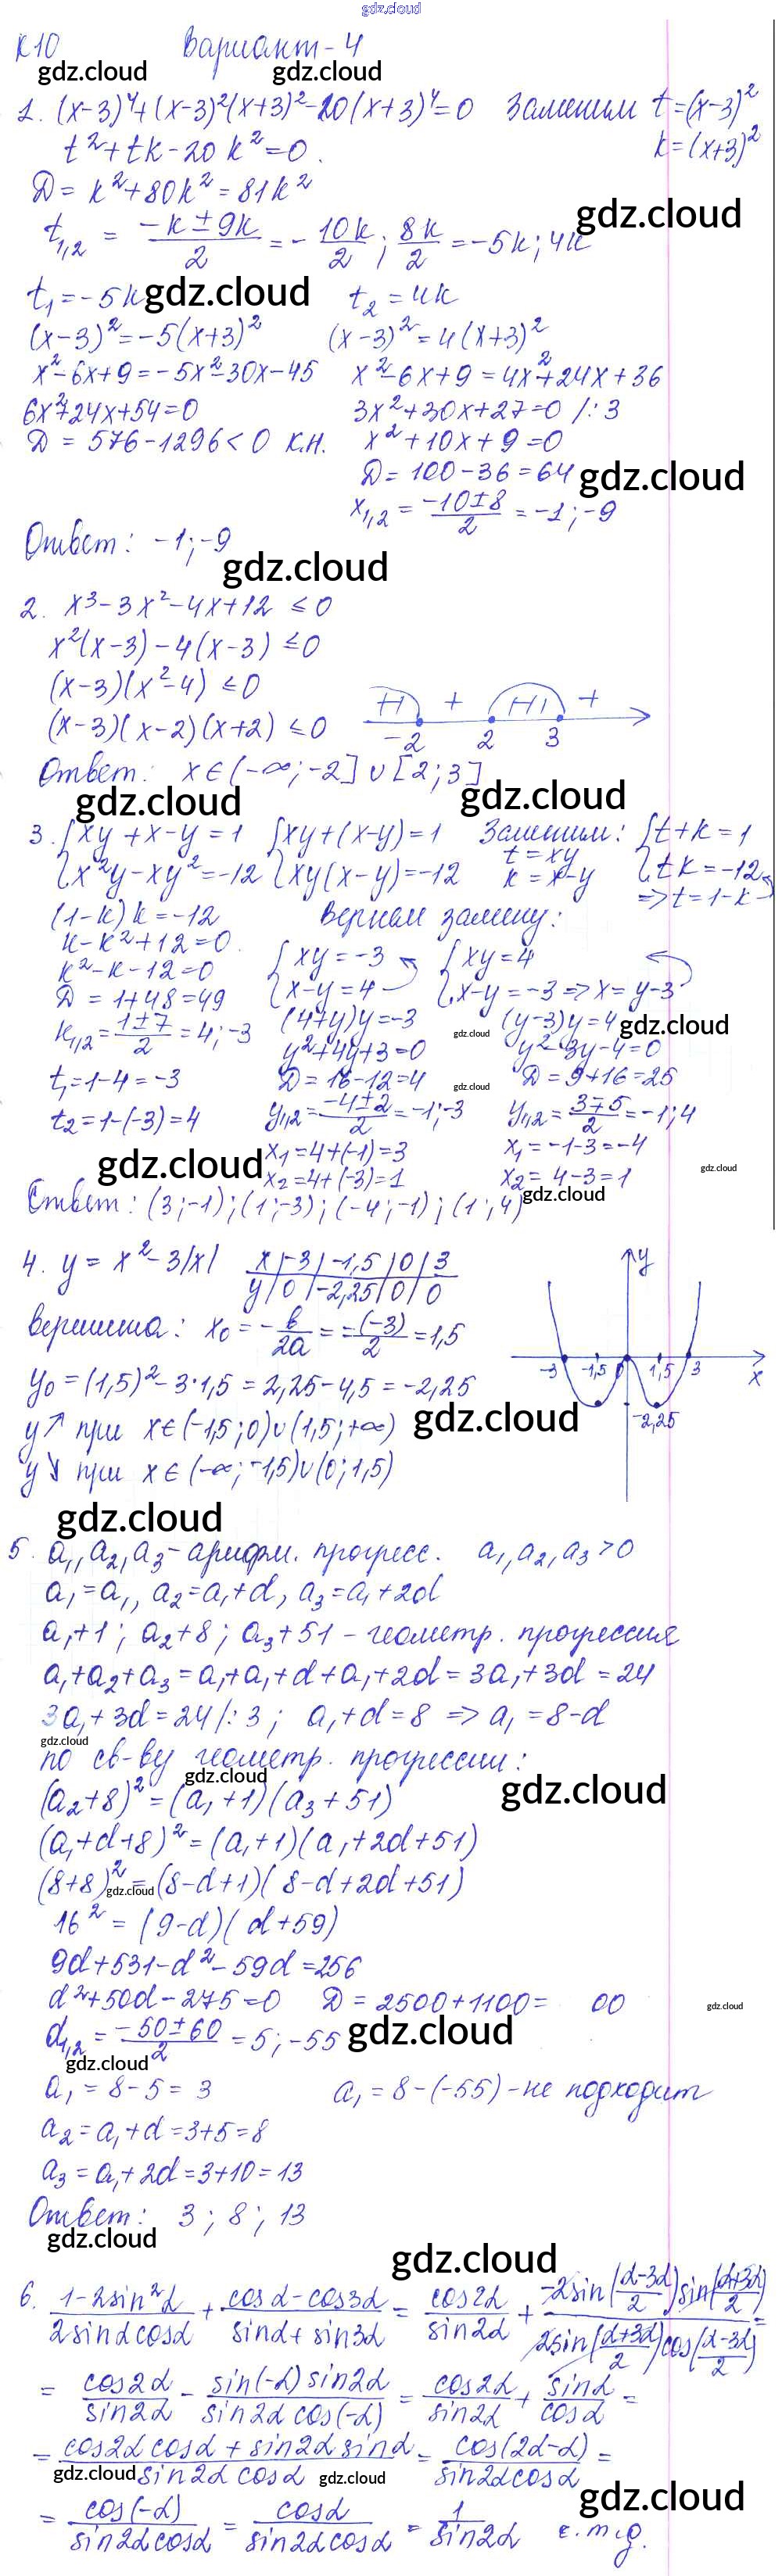 gdz.cloud
К10 Вариант-4
gdz.cloud gdz.cloud
1. (x-3)⁴+(x-3)²(x+3)²-20(x+3)⁴=0 Заменим t=(x-3)²
k=(x+3)²
t²+tk-20k²=0.
D=k²+80k²=81k²
gdz.cloud
t₁,₂ = (-k±9k)/2 = -10k/2; 8k/2 = -5k; 4k
t₁=-5k gdz.cloud t₂=4k
(x-3)²=-5(x+3)² (x-3)²=4(x+3)²
x²-6x+9=-5x²-30x-45 x²-6x+9=4x²+24x+36
6x²+24x+54=0 3x²+30x+27=0 /:3
D=576-1296<0 к.н. x²+10x+9=0
D=100-36=64 gdz.cloud
x₁,₂ = (-10±8)/2 = -1;-9
Ответ: -1;-9
gdz.cloud
2. x³-3x²-4x+12 ≤0
x²(x-3)-4(x-3) ≤0
(x-3)(x²-4) ≤0
(x-3)(x-2)(x+2) ≤0 + +
-2 2 3
Ответ: x∈(-∞;-2]∪[2;3]
gdz.cloud gdz.cloud
3. {xy+x-y=1 {xy+(x-y)=1 Заменим: {t+k=1
{x²y-xy²=-12 {xy(x-y)=-12 t=xy k=x-y {tk=-12
=>t=1-k
(1-k)k=-12 вернем замену:
k-k²+12=0.
k²-k-12=0 {xy=-3 {xy=4
D=1+48=49 {x-y=4 {x-y=-3=>x=y-3
k₁,₂=(1±7)/2=4;-3 (4+y)y=-3 gdz.cloud (y-3)y=4 gdz.cloud
y²+4y+3=0 y²-3y-4=0
t₁=1-4=-3 D=16-12=4 gdz.cloud D=9+16=25
t₂=1-(-3)=4 y₁,₂=(-4±2)/2=-1;-3 y₁,₂=(3∓5)/2=-1;4
x₁=4+(-1)=3 x₁=-1-3=-4
gdz.cloud x₂=4+(-3)=1 x₂=4-3=1 gdz.cloud
Ответ: (3;-1);(1;-3);(-4;-1);(1;4) gdz.cloud
4. y=x²-3|x| x|-3|-1,5|0|3
y|0|-2,25|0|0
y
вершина: x₀=-b/2a=-(-3)/2=1,5
-3 -1,5 0 1,5 3 x
y₀=(1,5)²-3·1,5=2,25-4,5=-2,25
-2,25
y↗ при x∈(-1,5;0)∪(1,5;+∞) gdz.cloud
y↘ при x∈(-∞;-1,5)∪(0;1,5)
gdz.cloud
5. a₁,a₂,a₃-арифм. прогресс. a₁,a₂,a₃>0
a₁=a₁, a₂=a₁+d, a₃=a₁+2d
a₁+1; a₂+8; a₃+51-геометр. прогрессия
a₁+a₂+a₃=a₁+a₁+d+a₁+2d=3a₁+3d=24
3a₁+3d=24/:3; a₁+d=8 => a₁=8-d
gdz.cloud
по св-ву геометр. прогрессии:
gdz.cloud gdz.cloud
(a₂+8)²=(a₁+1)(a₃+51)
(a₁+d+8)²=(a₁+1)(a₁+2d+51)
(8+8)²=(8-d+1)(8-d+2d+51)
gdz.cloud
16²=(9-d)(d+59)
9d+531-d²-59d=256
d²+50d-275=0 D=2500+1100= 00 gdz.cloud
d₁,₂=(-50±60)/2=5;-55 gdz.cloud
gdz.cloud
a₁=8-5=3 a₁=8-(-55)-не подходит
a₂=a₁+d=3+5=8
a₃=a₁+2d=3+10=13
Ответ: 3; 8; 13
gdz.cloud gdz.cloud
6. (1-2sin²α)/(2sinαcosα) + (cosα-cos3α)/(sinα+sin3α) = cos2α/sin2α + (-2sin((α-3α)/2)sin((α+3α)/2))/(2sin((α+3α)/2)cos((α-3α)/2)) =
= cos2α/sin2α - (sin(-α)sin2α)/(sin2αcos(-α)) = cos2α/sin2α + sinα/cosα =
= (cos2αcosα+sin2αsinα)/(sin2αcosα) = cos(2α-α)/(sin2αcosα) =
gdz.cloud gdz.cloud gdz.cloud
= cos(-α)/(sin2αcosα) = cosα/(sin2αcosα) = 1/sin2α ч.т.д.